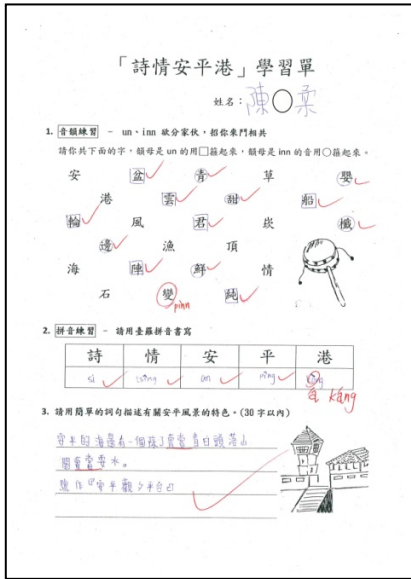 「詩情安平港」學習單
姓名：陳〇柔
1. 音韻練習 － un、inn 欲分家伙，招你來鬥相共
請你共下面的字，韻母是 un 的用□箍起來，韻母是 inn 的音用○箍起來。
安 盆 青 草 嬰
港 雲 甜 船
輪 風 君 崁 櫼
邊 漁 頂
海 陣 鮮 情
石 變 純
pìnn
2. 拼音練習 － 請用臺羅拼音書寫
詩 情 安 平 港
si tsîng an pîng
káng
3. 請用簡單的詞句描述有關安平風景的特色。(30 字以內)
安平的海邊有一個孫
日頭落山